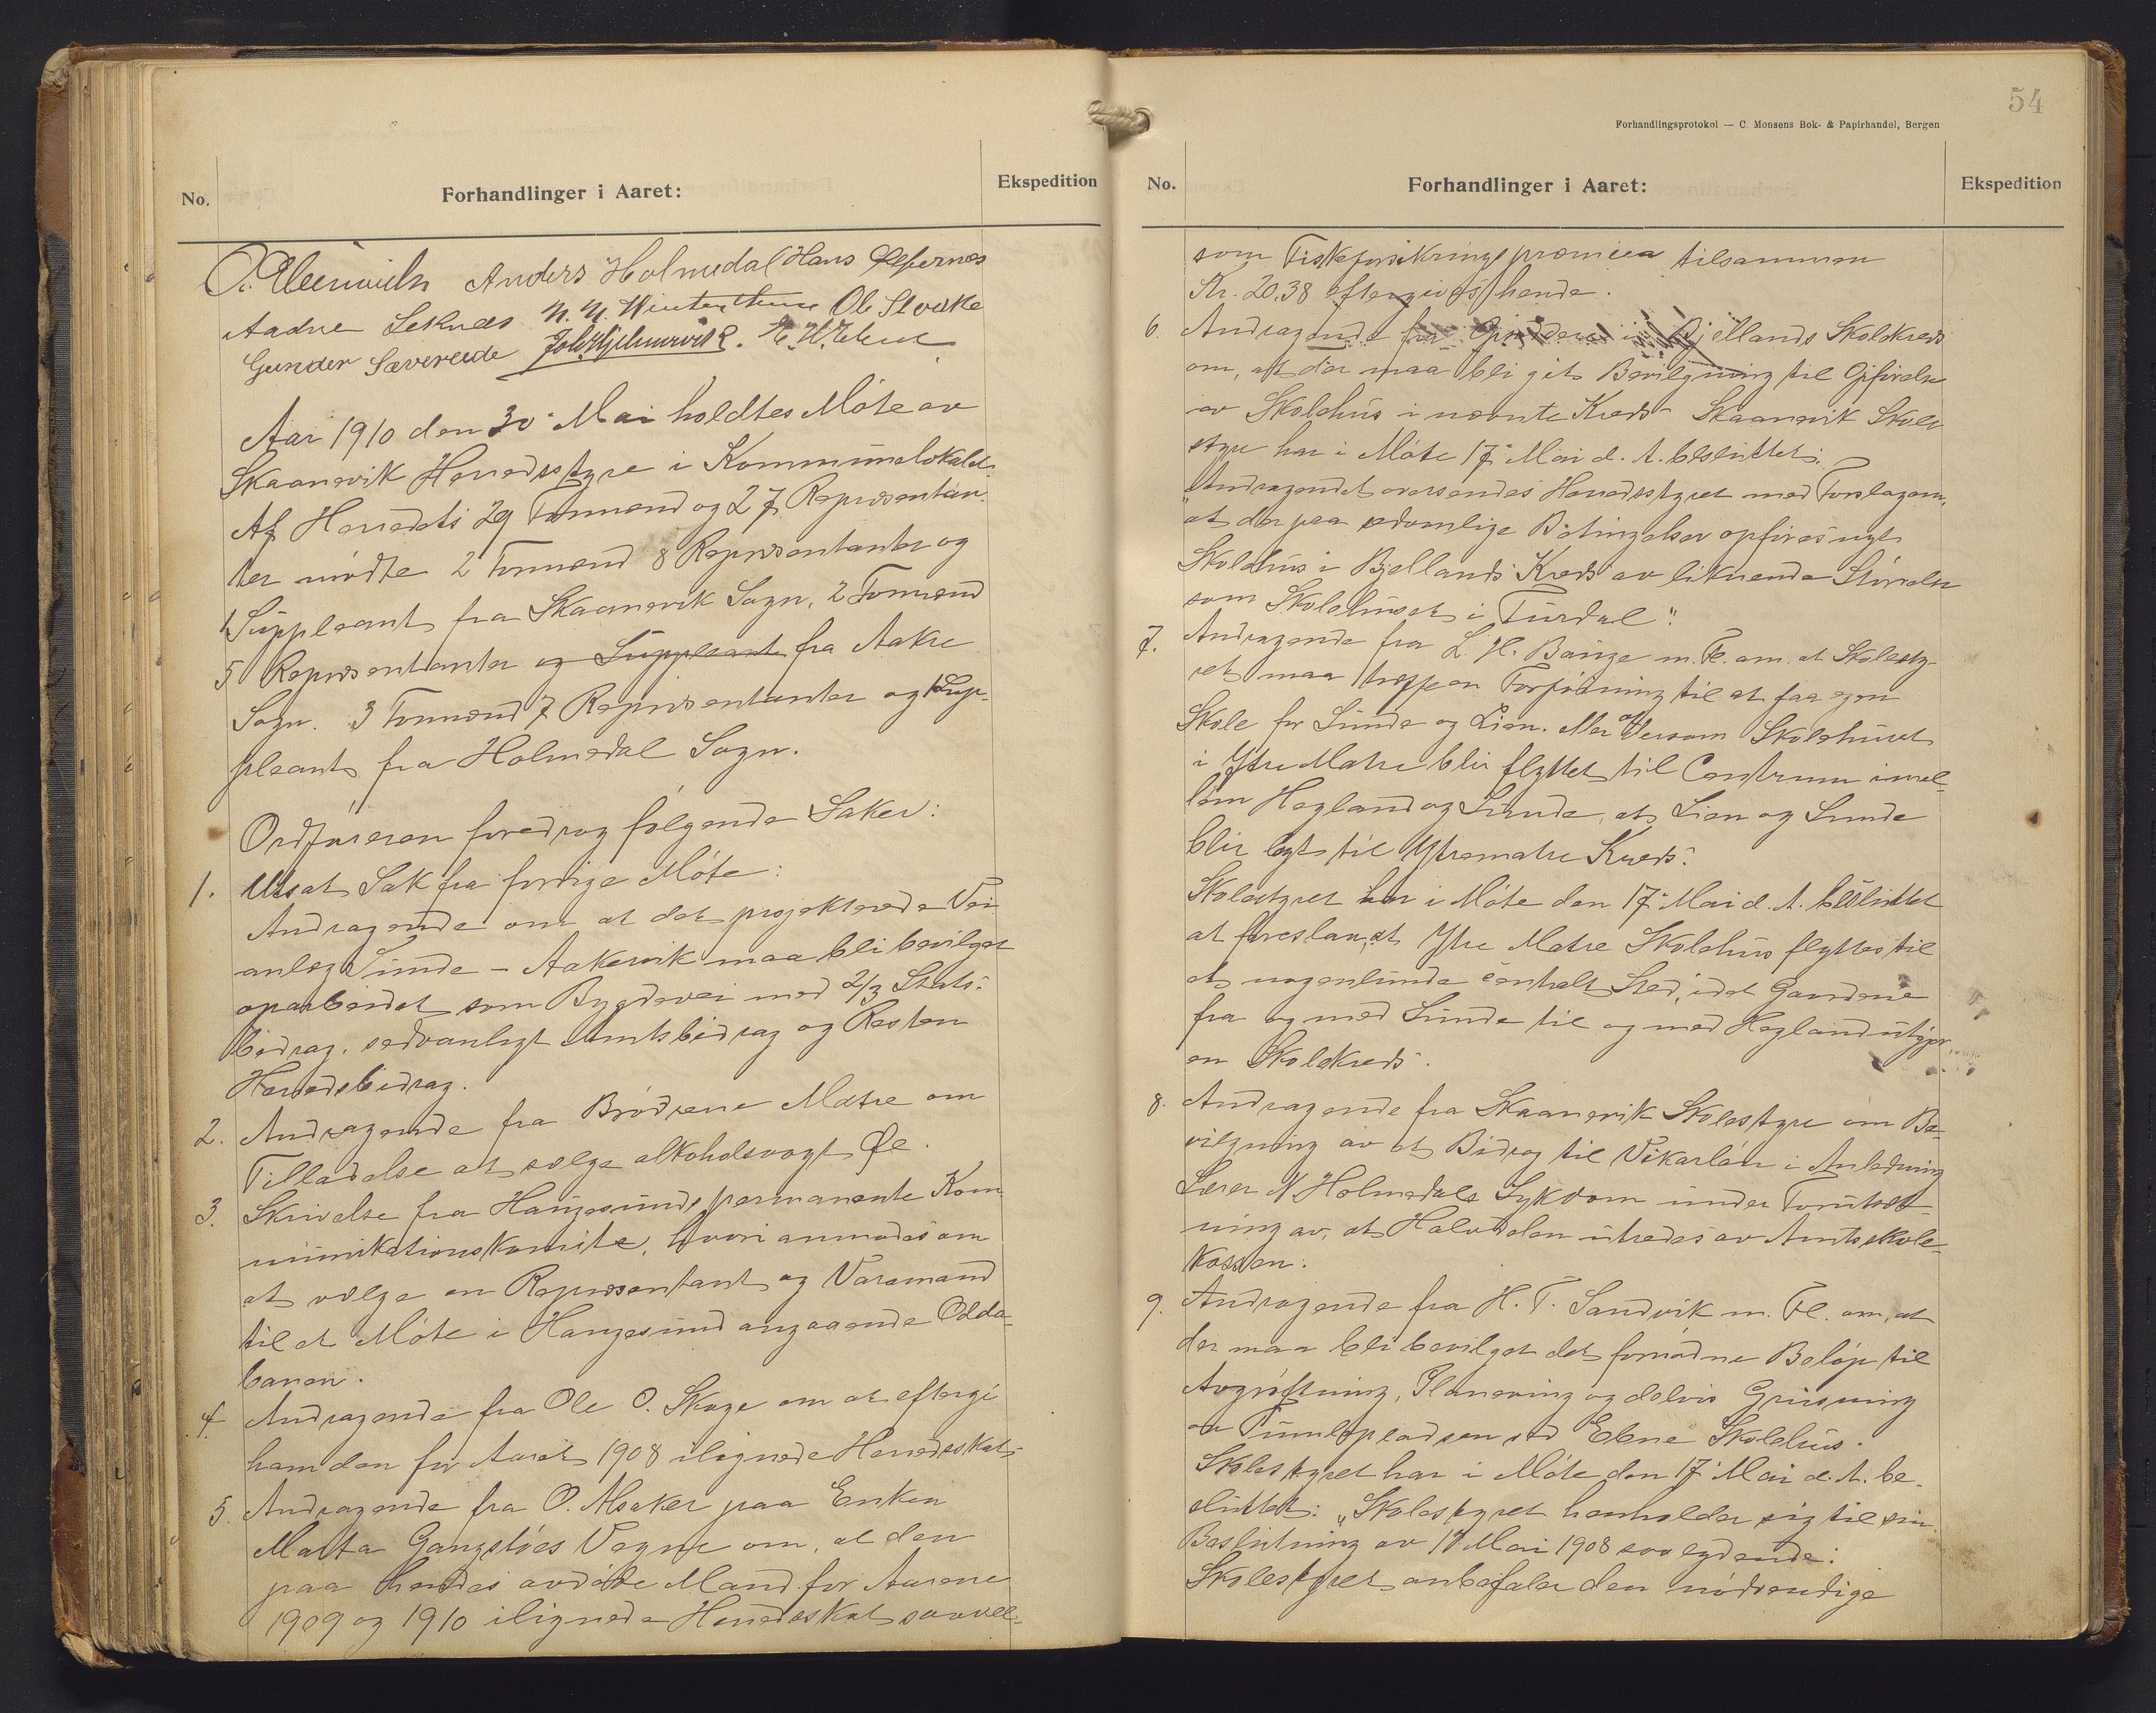 No.
Forhandlinger i Aaret:
Ekspedition
Anders Holmedal Hans
Aadne Leknes Ole Stokke
Gunder Sævereide
Aar 1910 den 30 Mai holdtes Møte av
Skaanevik Herredsstyre i Kommunelokalet.
Af Herredets 29 Formænd og 27 Repræsentan-
ter mødte 2 Formænd 8 Repræsentanter og
1 Suppleant fra Skaanevik Sogn, 2 Formænd
5 Repræsentanter og Suppleant fra Aakre
Sogn. 3 Formænd 7 Repræsentanter og 1 Sup-
pleant fra Holmedal Sogn.
Ordføreren foredrog følgende Saker:
1. Utsat Sak fra forrige Møte:
Andragende om at det projekterede Vei
anlæg Sunde - Aakervik maa bli bevilget
oparbeidet som Bygdevei med 2/3 Stats-
bidrag, sedvanligt Amtsbidrag og Resten
Herredsbidrag.
2. Andragende fra Brødrene Matre om
Tilladelse at sælge alkoholsvagt Øl.
3. Skrivelse fra Haugesunds permanente Kom
munikationskomite, hvori anmodes om
at vælge en Repræsentant og Varamand
til et Møte i Haugesund angaaende Odda-
banen.
4. Andragende fra Ole O. Skoge om at eftergi
ham den for Aaret 1908 ilignede Herredsskat.
5. Andragende fra O. Alsaker paa Enken
Marta Gangstøes Vegne om, at den
paa hendes avdøde Mand for Aarene
1909 og 1910 ilignede Herredsskat saavel-
54
Forhandlingsprotokol — C. Monsens Bok- & Papirhandel, Bergen
No.
Forhandlinger i Aaret:
Ekspedition
som Fiskeforsikringspræmien tilsammen
Kr. 20.38 eftergives hende.
6. Andragende fra i Bjellands Skolekreds
om, at der maa bli git Bevilgning til Opførelse
av Skolehus i nævnte Kreds. Skaanevik Skole
styre har i Møte 17 Mai d. A. besluttet:
"Andragendet oversendes Herredsstyret med Forslag om,
at der paa sedvanlige Betingelser opføres nyt
Skolehus i Bjellands Kreds av liknende Størrelse
som Skolehuset i Furdal".
7. Andragende fra L. H. Bauge m. Fl. om at Skolesty-
ret maa træffe en Forføining til at faa egen
Skole for Sunde og Lien. Men dersom Skolehuset
i Ytre Matre blir flyttet til Centrum imel-
lem Hegland og Sunde, at Lien og Sunde
blir lagt til Ytrematre Kreds.
Skolestyret har i Møte den 17 Mai d. A. besluttet
at foreslaa, at Ytre Matre Skolehus flyttes til
et nogenlunde centralt Sted, idet Gaardene
fra og med Sunde til og med Hegland utgjør
en Skolekreds.
8. Andragende fra Skaanevik Skolestyre om Be-
vilgning av et Bidrag til Vikarløn i Anledning
Lærer N. Holmedals Sykdom under Forutsæt-
ning av, at Halvdelen utredes av Amtsskole-
kassen.
9. Andragende fra H. T. Sandvik m. Fl. om, at
der maa bli bevilget det fornødne Beløp til
Avgrøftning, Planering og delvis Grusning
av Tumlepladsen ved Ebne Skolehus.
Skolestyret har i Møte den 17 Mai d. A. be-
sluttet: "Skolestyret henholder sig til sin
Beslutning av Mai 1908 saalydende:
Skolestyret anbefaler den nødvendige